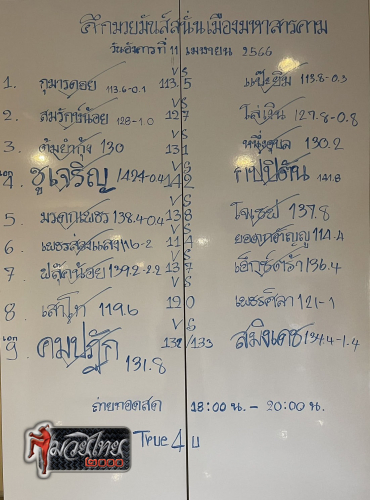 ศึกมวยมันส์สนั่นเมืองมหาสารคาม
วันอังคารที่ 11 เมษายน 2566
VS
1. กุมารดอย 113.6-0.1 113.5 แป๊ะยิ้ม 113.8-0.3
VS
2. สมรักษ์น้อย 128-1.0 127 ไล่เงิน 127.8-0.8
VS
3. ต้มยำกุ้ง 130 131 หนึ่งอุบล 130.2
VS
เอก 4. ชูเจริญ 142.4-0.4 142 กปปิตัน 141.8
VS
5. มรดกเพชร 138.4-0.4 138 โจเซฟ 137.8
VS
6. เพชรส่องแสง 116-2 114 ยอดกตัญญู 114.4
VS
7. ฟลุ๊คน้อย 139.2-2.2 137 136.4
VS
8. เสาโท 119.6 120 เพชรศิลา 121-1
VS
เอก 9. คมปฏัก 131.8 132/133 สมิงเดช 134.4-1.4
ถ่ายทอดสด 18:00 น. - 20:00 น.
True 4 U
มวยไทย
๒๐๐๐